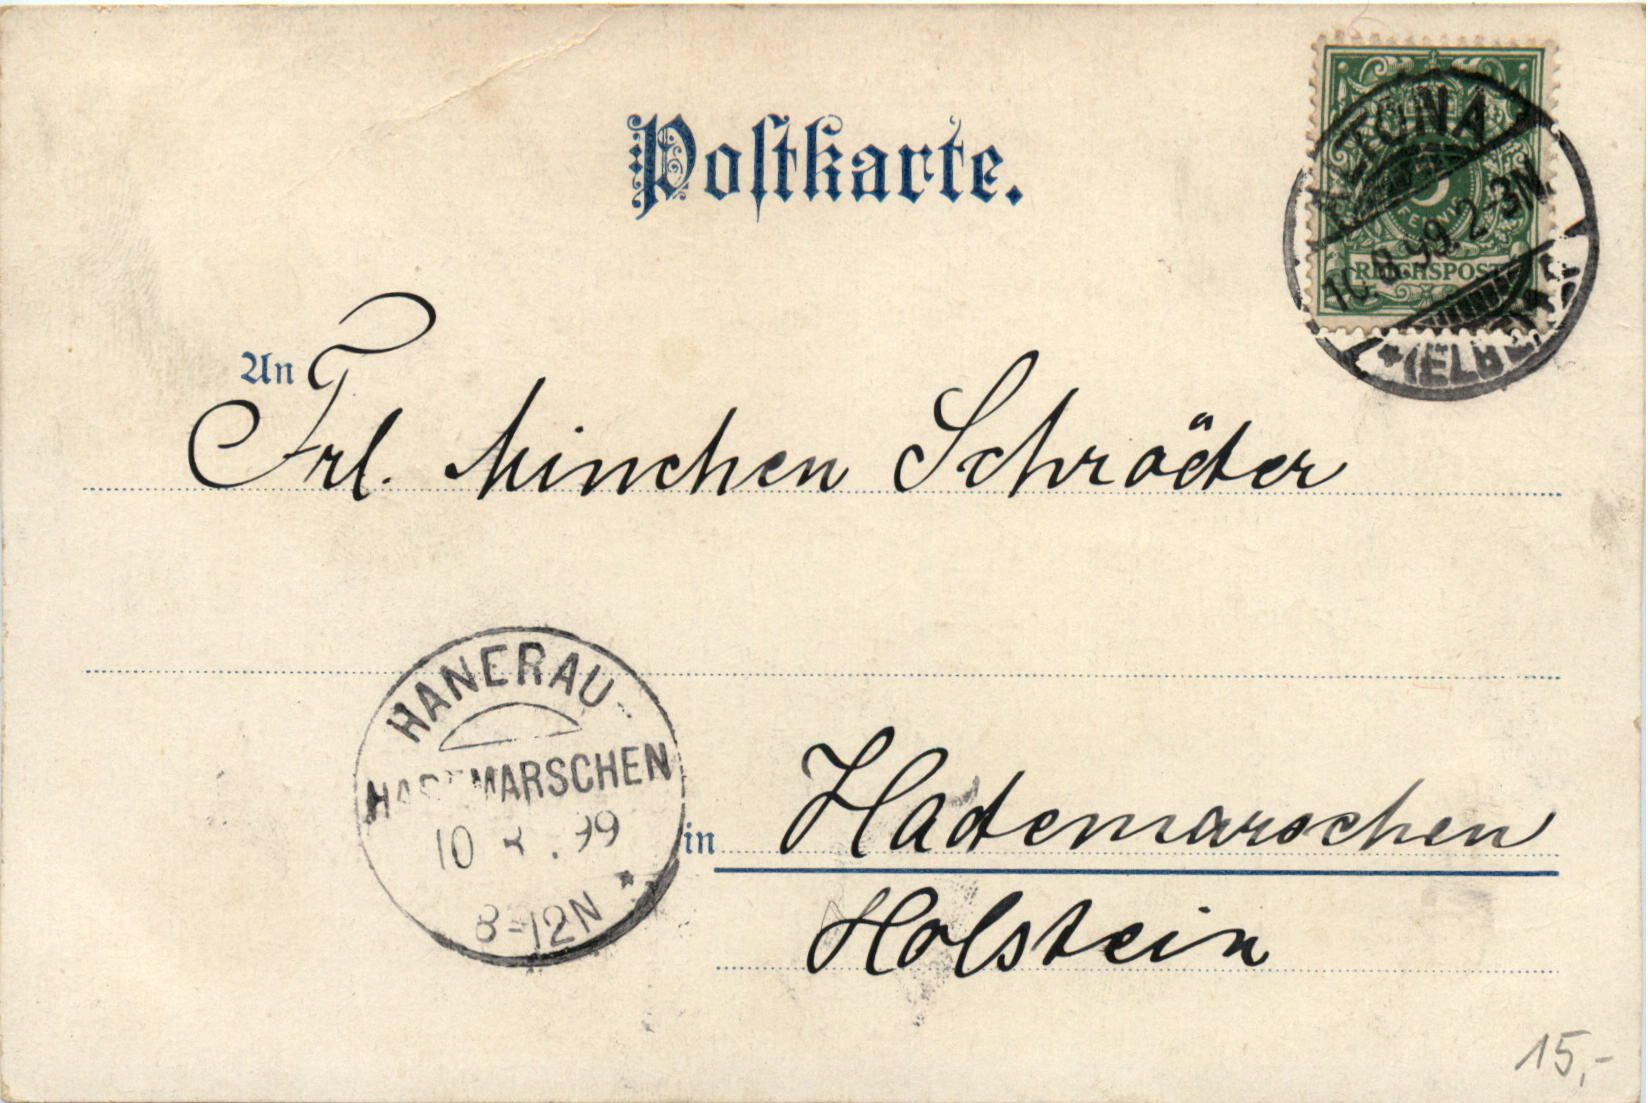 Postkarte.
ALTONA
10.8.99. 2-3N.
REICHSPOST
An
Frl. Minchen Schröder
HANERAU
HADEMARSCHEN
10 8. 99
8-12N
in Hademarschen
Holstein
15,-